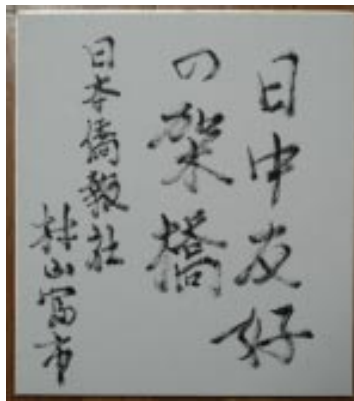 日中友好
の架橋
日本僑報社
村山富市